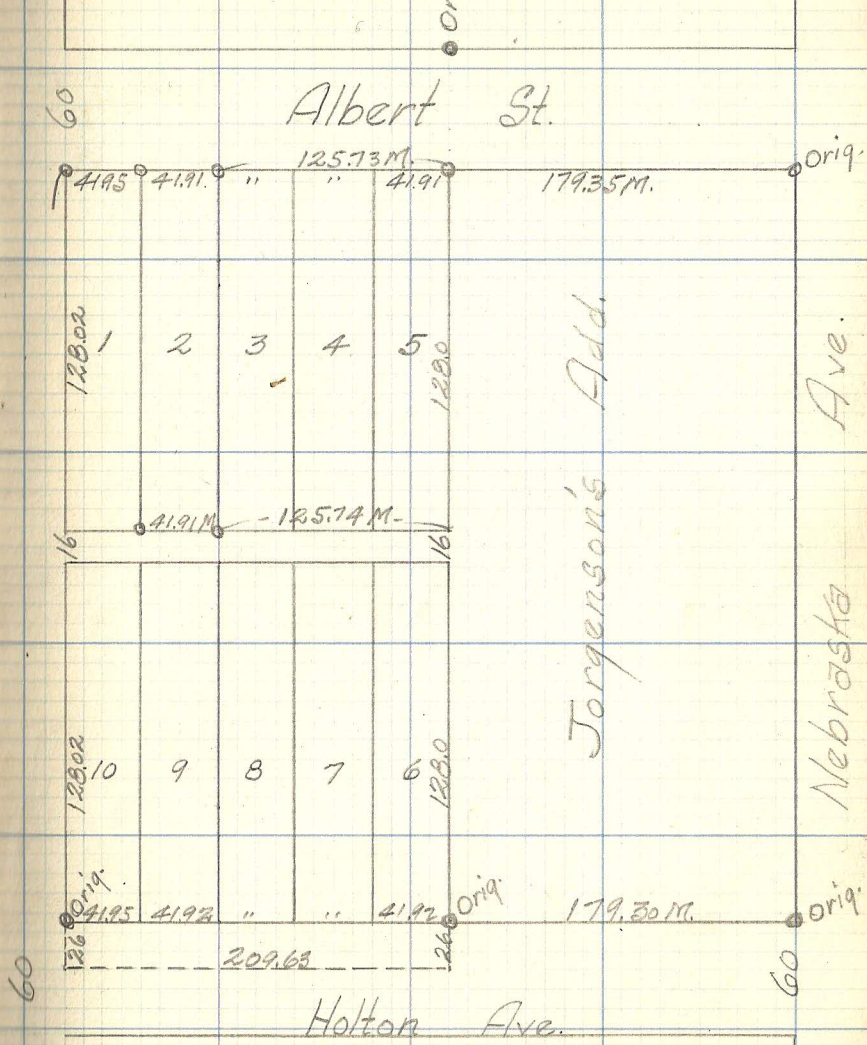 Or
60
Albert St.
125.73 M.
Orig.
41.95 41.91 " " 41.91 179.35 M.
128.02
1 2 3 4 5
128.0
Jorgenson's Add.
Nebraska Ave.
41.91 M -125.74 M-
16 16
128.02
10 9 8 7 6
128.0
Orig. Orig. Orig.
41.95 41.92 " " 41.92 179.30 M.
26 26
209.63
60 60
Holton Ave.